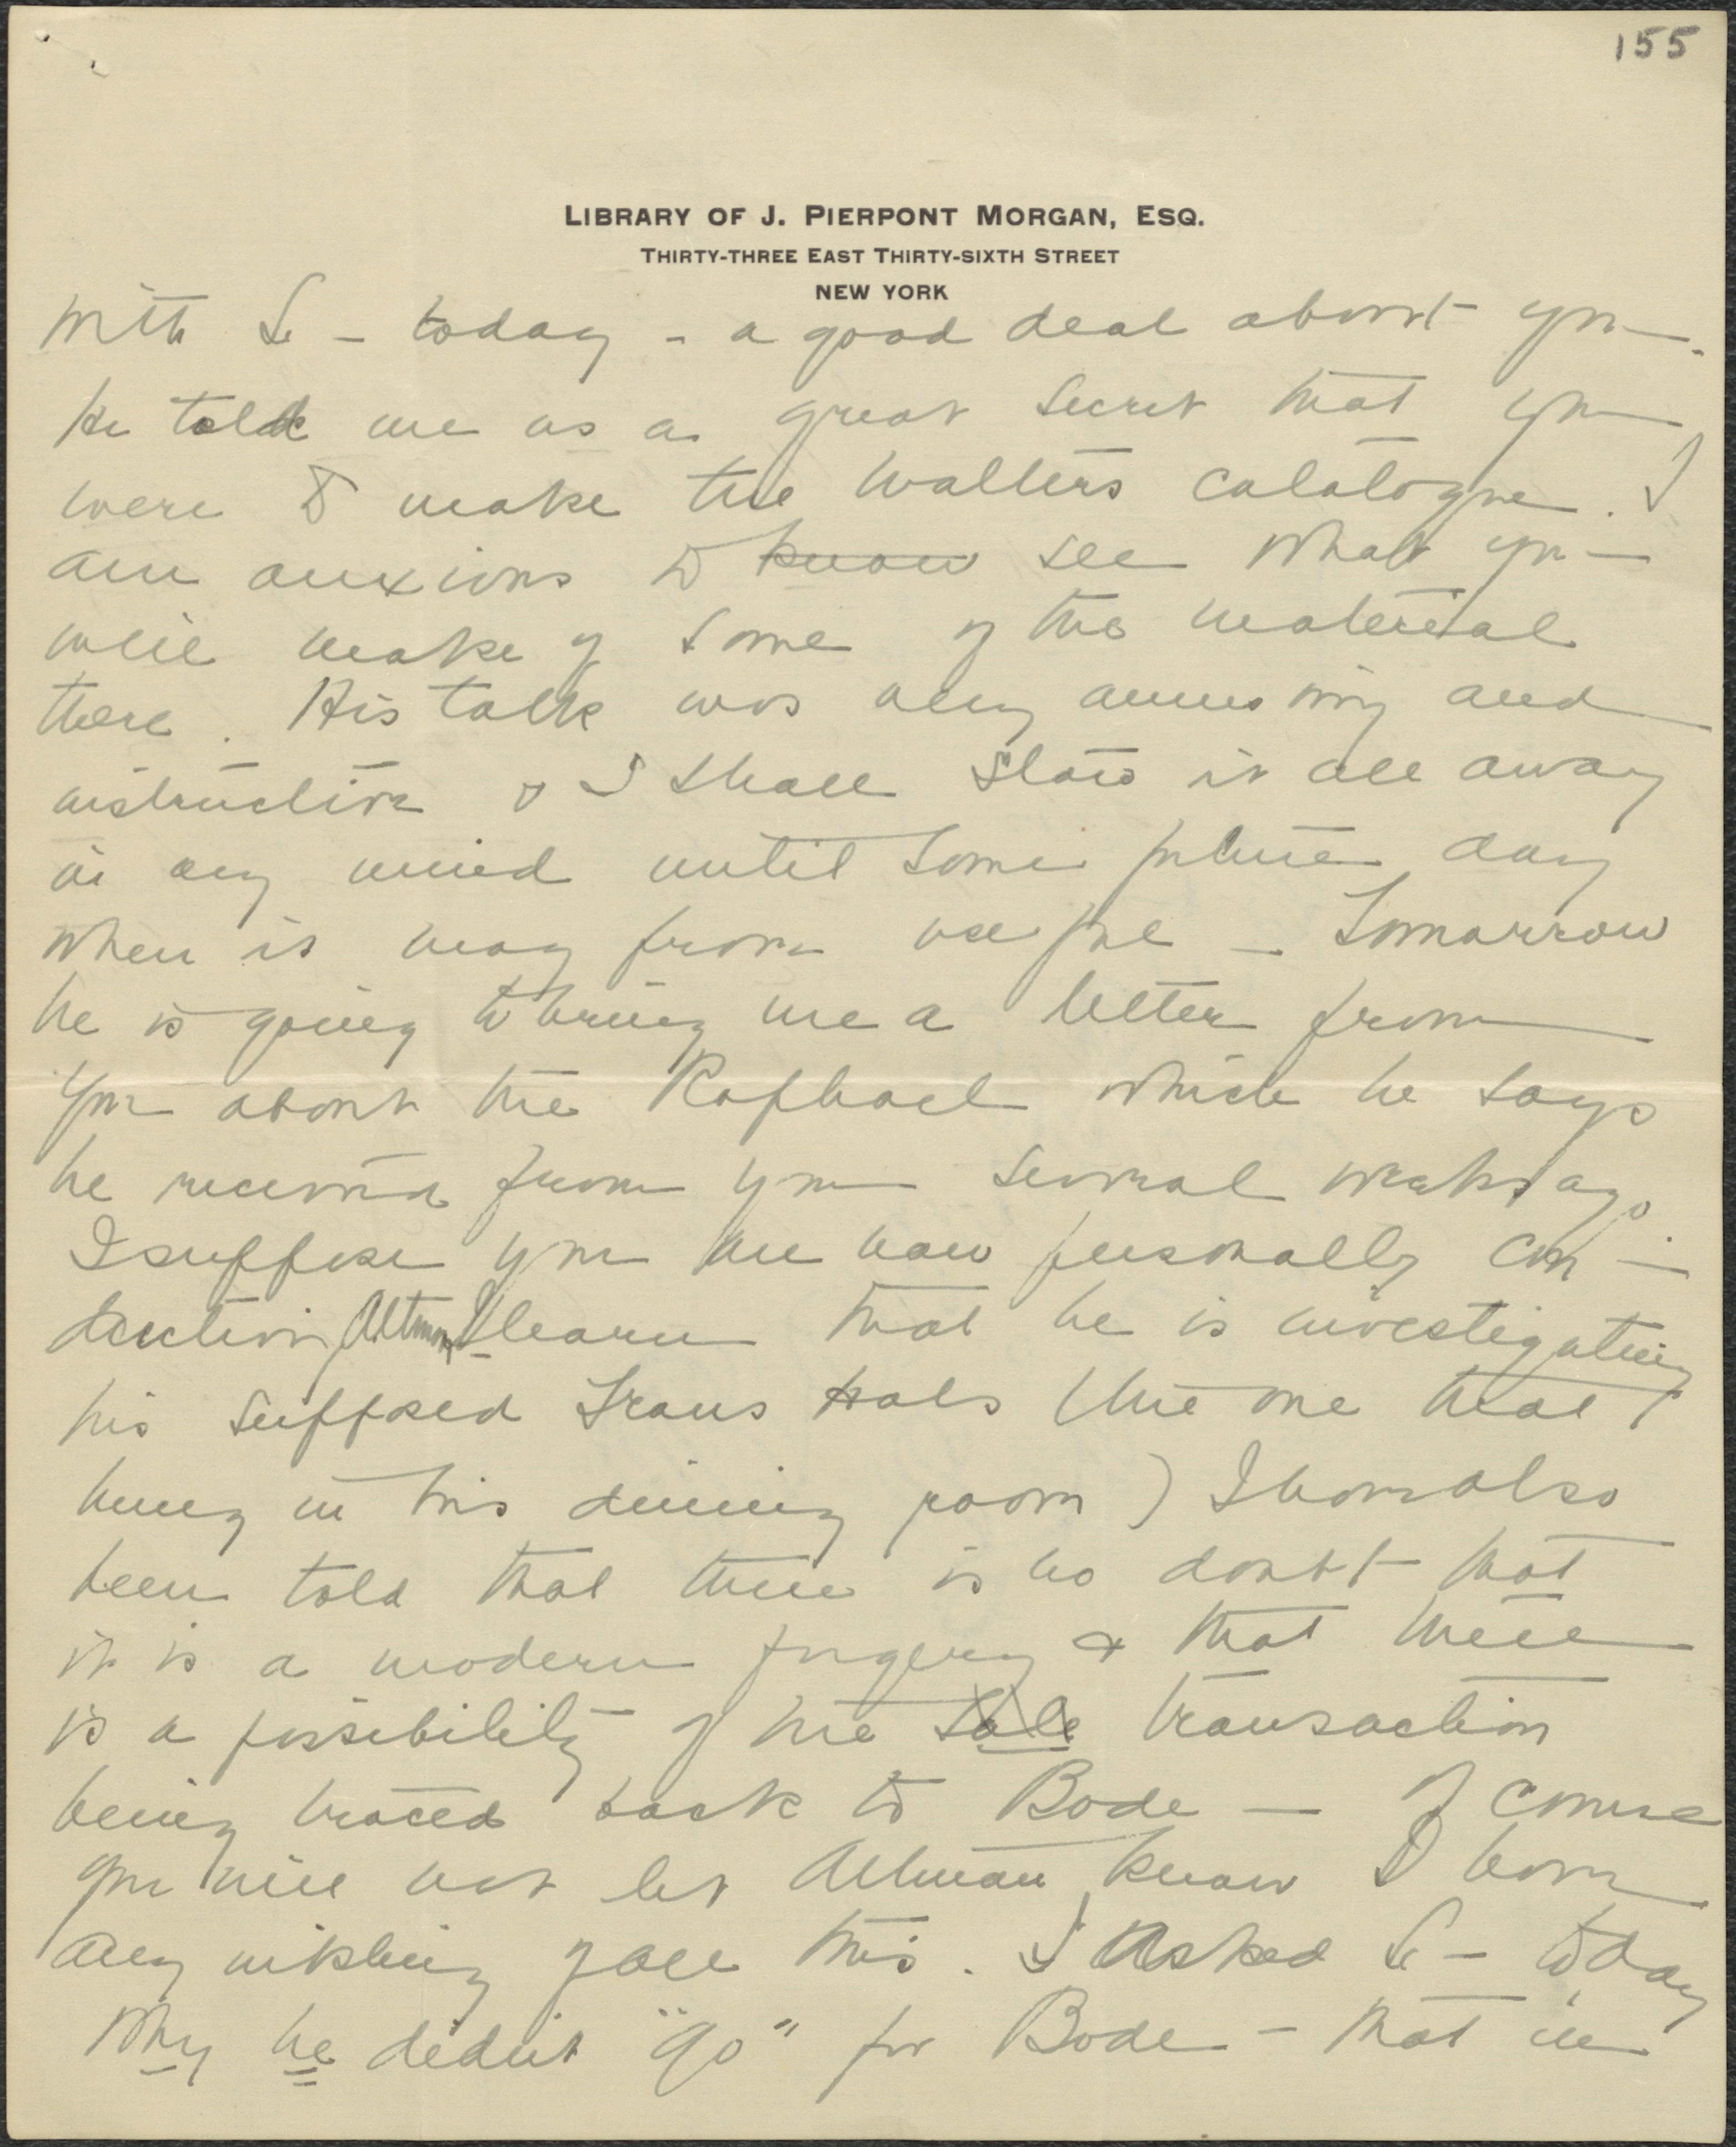 155
LIBRARY OF J. PIERPONT MORGAN, ESQ.
THIRTY-THREE EAST THIRTY-SIXTH STREET
NEW YORK
with S. – today – a good deal about you.
He told me as a great secret that you
were to make the Walters catalogue. I
am anxious to know see what you
will make of some of the material
there. His talk was very amusing and
instructive & I shall stow it all away
in my mind until some future day
when it may prove useful – Tomorrow
he is going to bring me a letter from
you about the Raphael which he says
he received from you several weeks ago.
I suppose you are now personally con-
ducting Altman I learn that he is investigating
his supposed Franz Hals (the one that
hung in his dining room) I have also
been told that there is no doubt that
it is a modern forgery & that there
is a possibility of the sale transaction
being traced back to Bode — Of course
you will not let Altman know I have
any inkling of all this. I asked S. – today
why he didn't "go" for Bode – that in